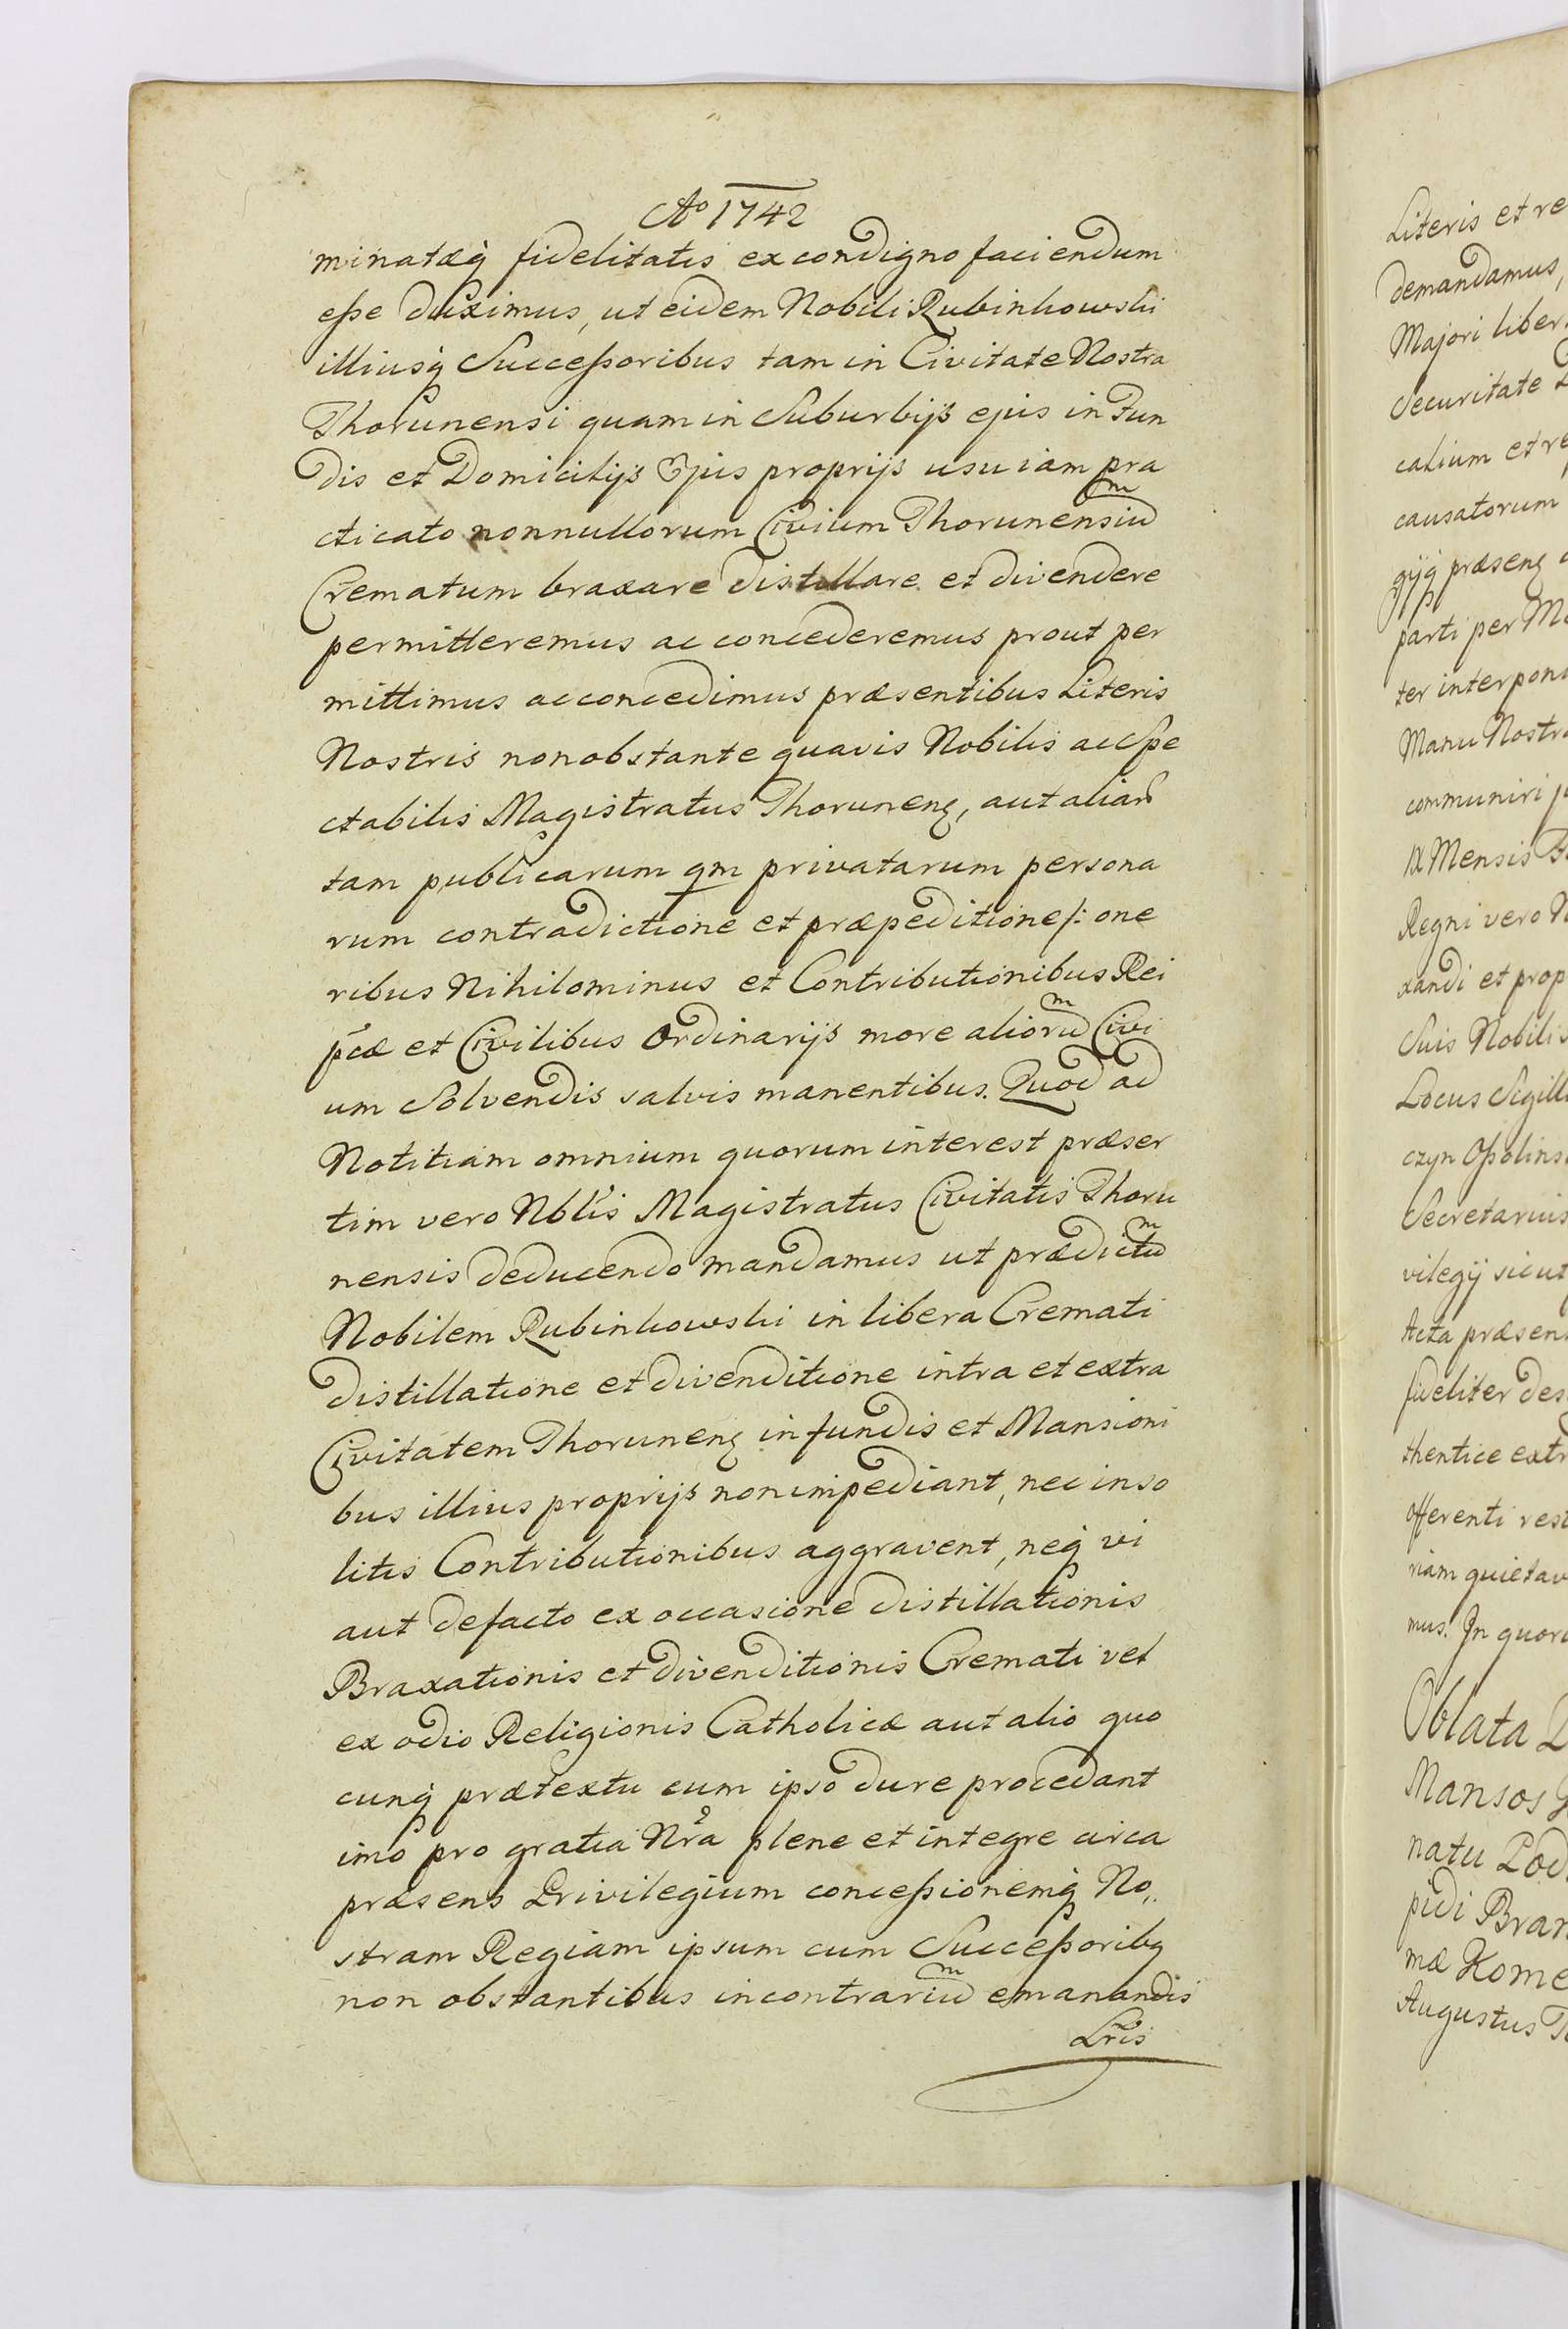 Ao 1742
minatæq fidelitatis ex condigno faciendum
eße duximus, ut eidem Nobili Rubinkowski
illiusq Succeßoribus tam in Civitate Nostra
Thorunensi quam in Suburbijs ejus in Fun
dis et Domicilijs Ejus proprijs usu iam pra
cticato nonnullorum Civium Thorunensiu͞m
Crematum braxare distillare et divendere
permitteremus ac concederemus prout per
mittimus ac concedimus præsentibus Literis
Nostris non obstante quavis Nobilis ac Spe
ctabilis Magistratus Thorunenꝫ, aut aliaru͞
tam publicarum qm privatarum persona
rum contradictione et præpeditione /: one
ribus Nihilominus et Contributionibus Rei
pcæ et Civilibus Ordinarijs more alioru͞m Civi
um Solvendis salvis manentibus. Quod ad
Notitiam omnium quorum interest præser
tim vero Nblis Magistratus Civitatis Thoru
nensis deducendo mandamus ut prædictu͞m
Nobilem Rubinkowski in libera Cremati
distillatione et divenditione intra et extra
Civitatem Thorunenꝫ in fundis et Mansioni
bus illius proprijs non impediant, nec inso
litis Contributionibus aggravent, neq vi
aut de facto ex occasione distillationis
Braxationis et divenditionis Cremati vel
ex odio Religionis Catholicæ aut alio quo
cunq prætextu cum ipso dure procedant
imo pro gratia Nra plene et integre circa
præsens Privilegium conceßionemq No„
stram Regiam ipsum cum Succeßoribꝫ
non obstantibus in contrariu͞m emanandis
Lris
Literis et re
demandamus,
Majori liber
Securitate
calium et re
causatorum
gijq præsenꝫ
parti per M
ter interpon
Manu Nostr
communiri
IX Mensis F
Regni vero N
xandi et prop
Suis Nobilis
Locus Sigill
czyn Oßolins
Secretarius
vilegij sicut
Acta præsen
fideliter des
thentice extr
offerenti rest
riam quietav
mus. In quor
Oblata
Mansos
natu Pod
pidi Bran
mæ Kome
Augustus